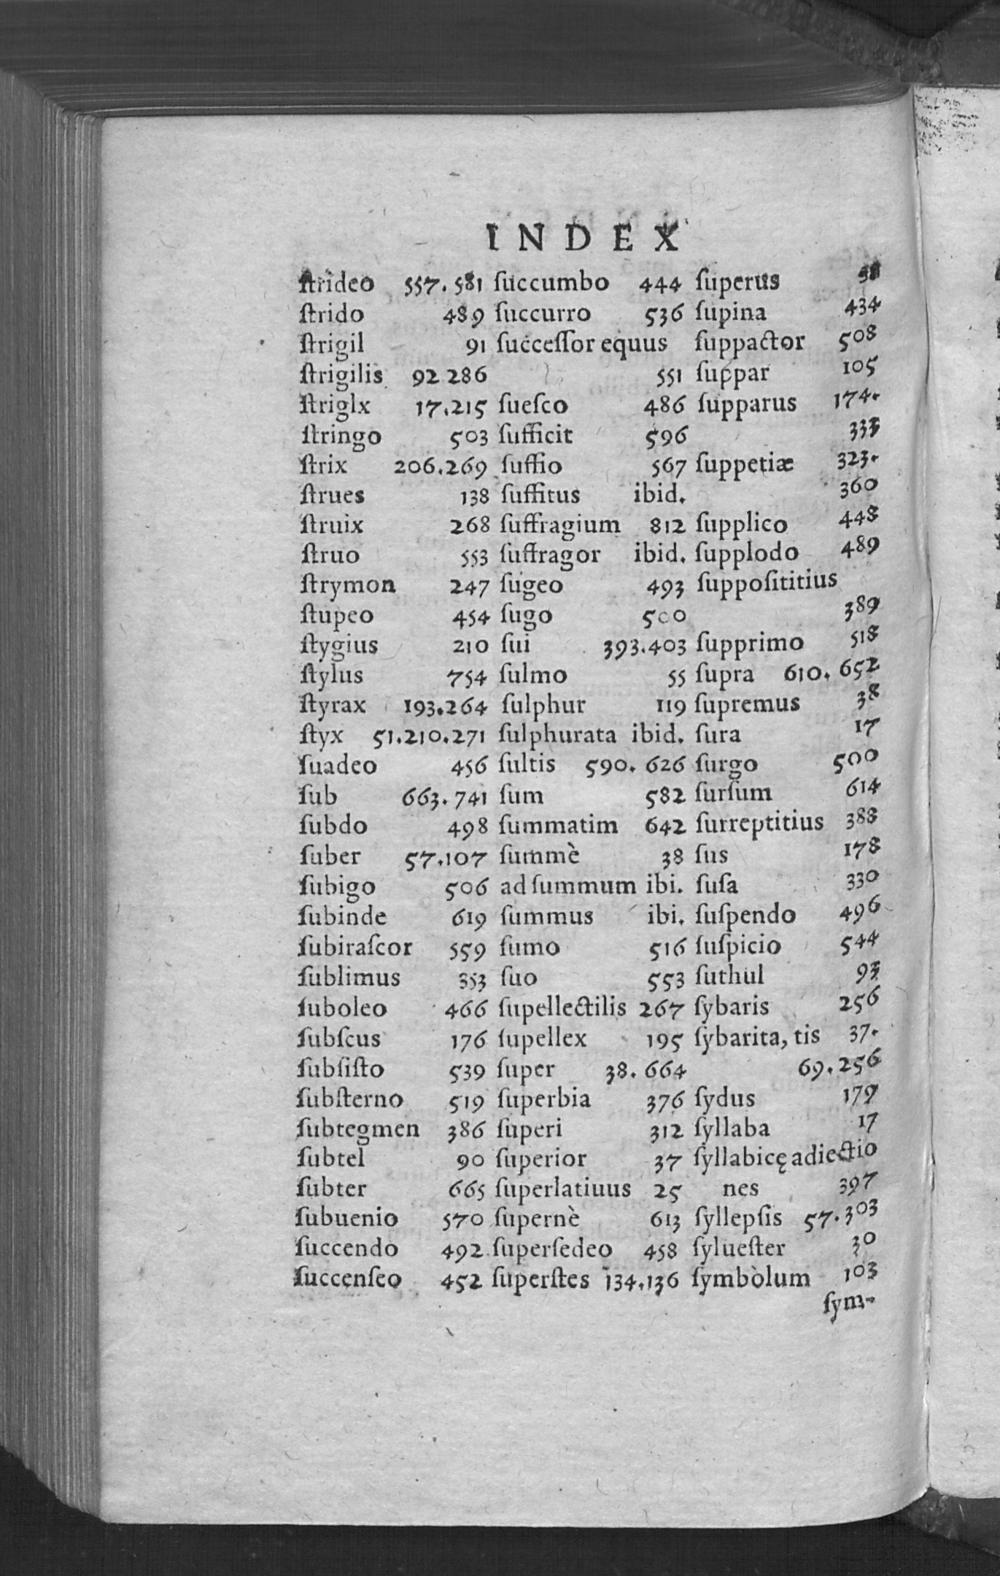 INDEX
ſtrideo 557. 581
ſtrido 489
ſtrigil 91
ſtrigilis 92 286
ſtriglx 17.215
ſtringo 503
ſtrix 206.269
ſtrues 138
ſtruix 268
ſtruo 553
ſtrymon 247
ſtupeo 454
ſtygius 210
ſtylus 754
ſtyrax 193.264
ſtyx 51.210.271
ſuadeo 456
ſub 663. 741
ſubdo 498
ſuber 57.107
ſubigo 506
ſubinde 619
ſubiraſcor 559
ſublimus 353
ſuboleo 466
ſubſcus 176
ſubſiſto 539
ſubſterno 519
ſubtegmen 386
ſubtel 90
ſubter 665
ſubuenio 570
ſuccendo 492
ſuccenſeo 452
ſuccumbo 444
ſuccurro 536
ſucceſſor equus
551
ſueſco 486
ſufficit 596
ſuffio 567
ſuffitus ibid.
ſuffragium 812
ſuffragor ibid.
ſugeo 493
ſugo 500
ſui 393.403
ſulmo 55
ſulphur 119
ſulphurata ibid.
ſultis 590. 626
ſum 582
ſummatim 642
ſummè 38
ad ſummum ibi.
ſummus ibi.
ſumo 516
ſuo 553
ſupellectilis 267
ſupellex 195
ſuper 38. 664
ſuperbia 376
ſuperi 312
ſuperior 37
ſuperlatiuus 25
ſupernè 613
ſuperſedeo 458
ſuperſtes 134.136
ſuperus
ſupina 434
ſuppactor 508
ſuppar 105
ſupparus 174.
333
ſuppetiæ 323.
360
ſupplico 448
ſupplodo 489
ſuppoſititius
389
ſupprimo 518
ſupra 610. 652
ſupremus 38
ſura 17
ſurgo 500
ſurſum 614
ſurreptitius 388
ſus 178
ſuſa 330
ſuſpendo 496
ſuſpicio 544
ſuthul 93
ſybaris 256
ſybarita, tis 37.
69.256
ſydus 179
ſyllaba 17
ſyllabicę adiectio
nes 397
ſyllepſis 57.303
ſylueſter 30
ſymbolum 103
ſym-